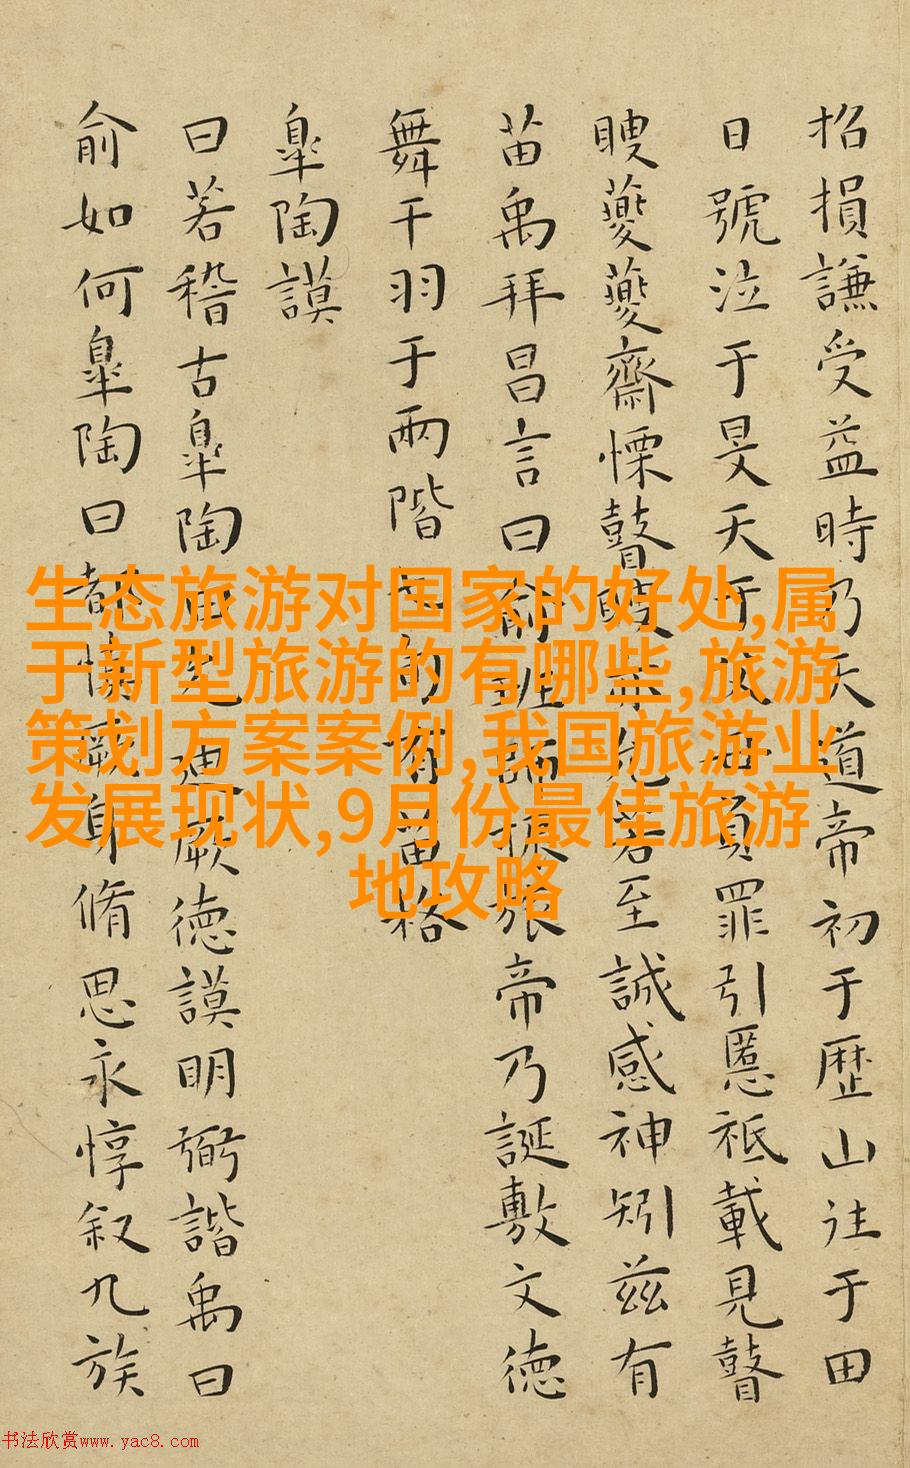 招損謙受益時乃天道帝初于歴山往于田
日號泣于旻天于父母負罪引慝祗載見瞽
瞍夔夔齋慄瞽瞍亦允若至諴感神矧茲有
苗禹拜昌言曰俞班師振旅帝乃誕敷文德
舞干羽于兩階七旬有苗格
皐陶謨
曰若稽古皐陶曰允迪厥德謨明弼諧禹曰
俞如何皐陶曰都慎厥身脩思永惇叙九族
生态旅游对国家的好处,属
于新型旅游的有哪些,旅游
策划方案案例,我国旅游业
发展现状,9月份最佳旅游
地攻略
书法欣赏www.yac8.com